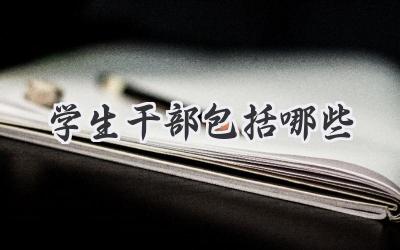 学生干部包括哪些